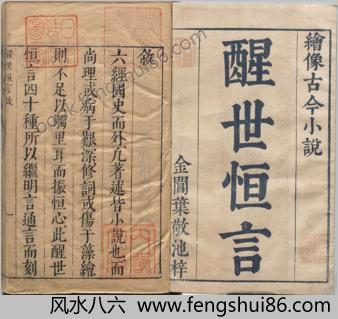 繪像古今小說
醒世恒言
金閶葉敬池梓
敘
六經國史而外凡著述皆小說也而
尚理或病于艱深修詞或傷于藻繪
則不足以觸里耳而振恒心此醒世
恒言四十種所以繼明言通言而刻
醒世恒言敘
一
风水八六 www.fengshui86.com